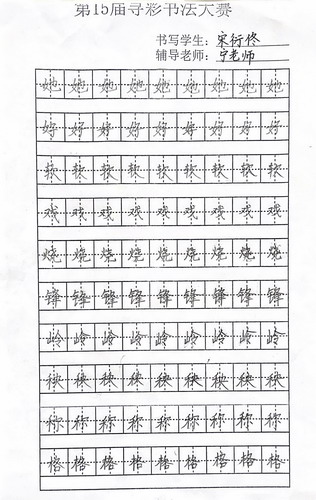 第15届寻彩书法大赛
书写学生：宋衍佟
辅导老师：宁老师
她她她她她她她她她
好好好好好好好好好
软软软软软软软软软
戏戏戏戏戏戏戏戏戏
烧烧烧烧烧烧烧烧烧
锋锋锋锋锋锋锋锋锋
岭岭岭岭岭岭岭岭岭
秧秧秧秧秧秧秧秧秧
称称称称称称称称称
格格格格格格格格格